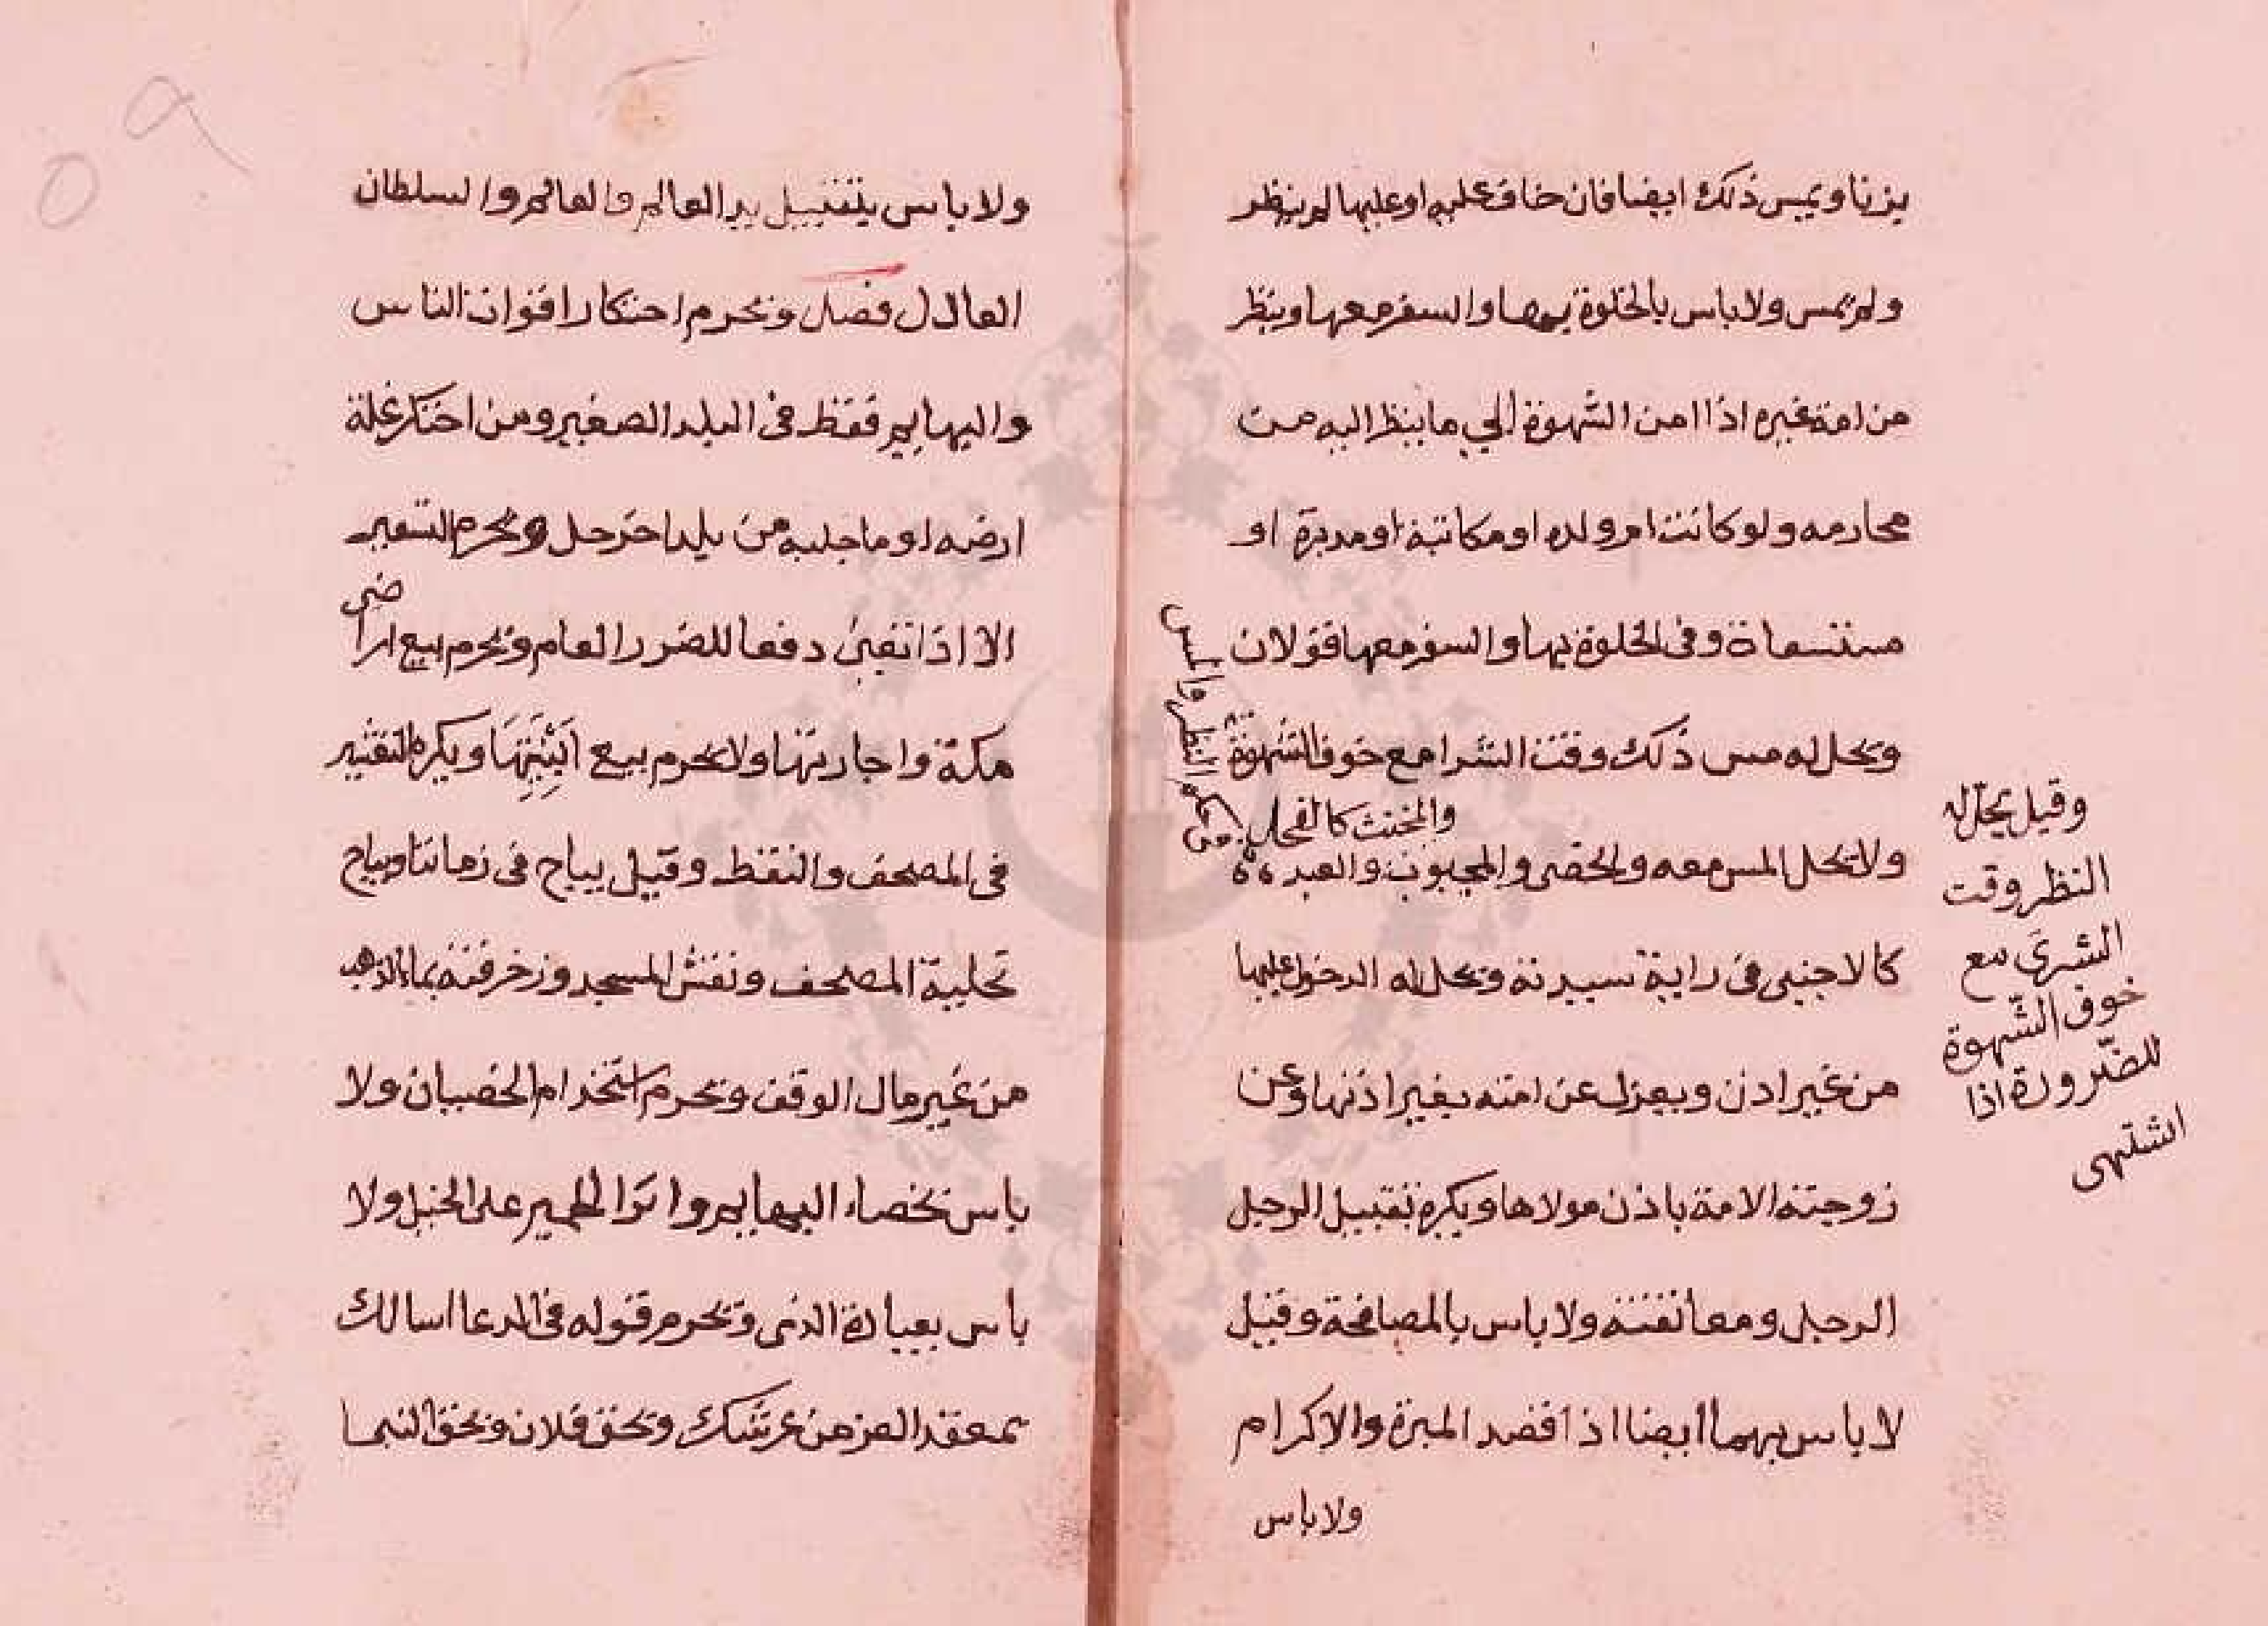 بزنا ويمس ذلك ايضا فان خاف عليه او عليها لم ينظر
ولم يمس ولا باس بالخلوة بهما والسفر معها وينظر
من امة غيره اذا امن الشهوة الي ما ينظر اليه من
محارمه ولو كانت ام ولده او مكاتبة او مدبرة او
مستسعاة وفى الخلوة بها والسفر معها قولان
ويحل له مس ذلك وقت الشرا مع خوف الشهوة
والمخنث كالفحل
ولا يحل المس معه والخصى والمجبوب والعبد
كالاجنبى فى راية سيدته ويحل له الدخول عليها
من غير اذن ويعزل عن امته بغير اذنها وعن
زوجته الامة باذن مولاها ويكره تقبيل الرجل
الرجل ومعانقته ولا باس بالمصافحة وقيل
لا باس بهما ايضا اذا قصد المبرة والاكرام
ولا باس
وقيل يحل له
النظر وقت
الشرى مع
خوف الشهوة
للضرورة اذا
اشتهى
النظر والمس
ولا باس بتقبيل يد العالم والعالم والسلطان
العادل فصل ويحرم احتكار اقوات الناس
والبهايم فقط فى البلد الصغير ومن احتكر غلة
ارضه او ما جلبه من بلد اخر حل ويحرم التسعير
الا اذا تعين دفعا للضرر العام ويحرم بيع اراضى
مكة واجارتها ولا يحرم بيع ابنيتها ويكره التعشير
فى المصحف والنقط وقيل يباح فى زماننا ويباح
تحلية المصحف ونقش المسجد وزخرفته بماء الذهب
من غير مال الوقف ويحرم استخدام الخصيان ولا
باس بخصاء البهايم وانزا الحمير على الخيل ولا
باس بعيادة الذمى ويحرم قوله فى الدعا اسالك
بمعقد العز من عرشك وبحق فلان وبحق انبيا